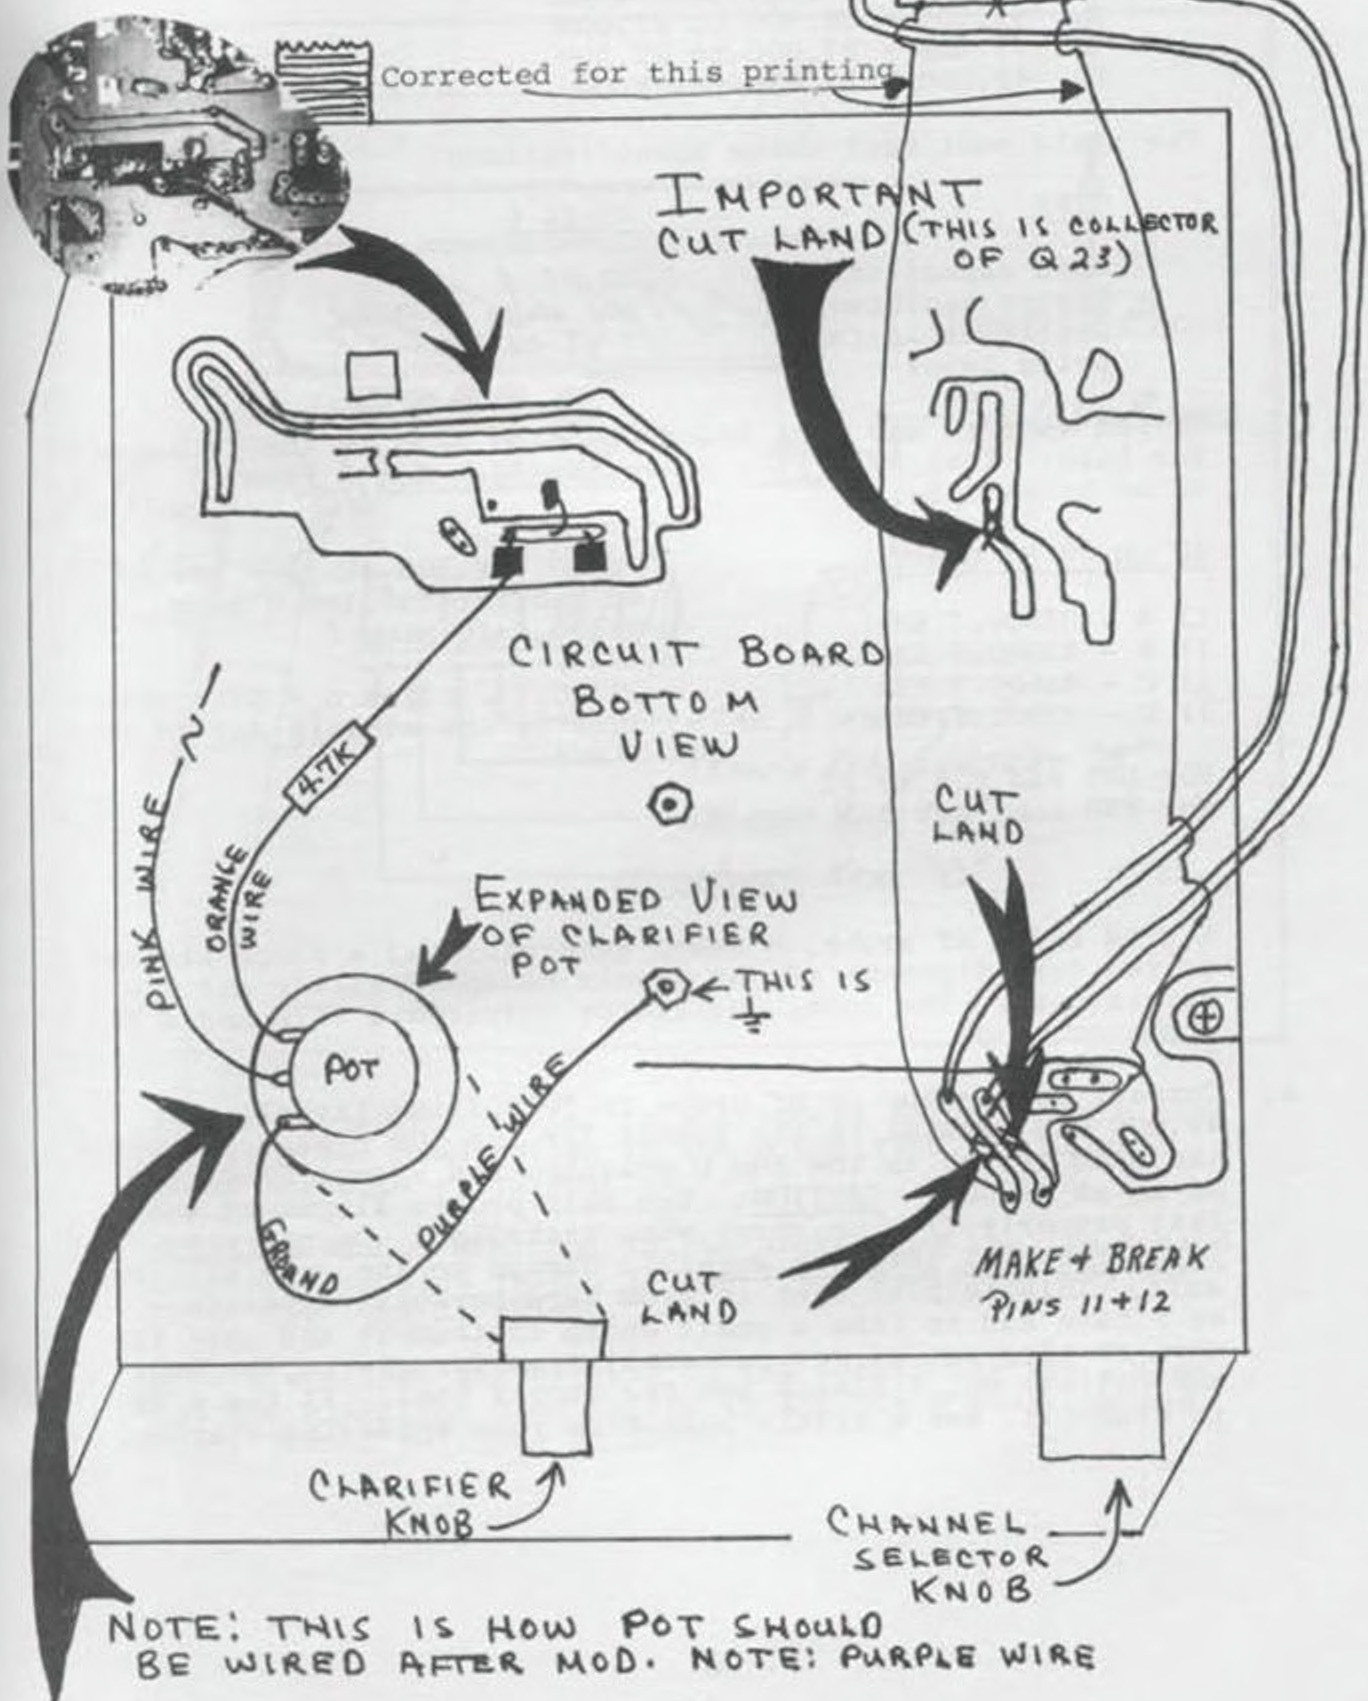 Corrected for this printing
IMPORTANT
CUT LAND (THIS IS COLLECTOR
OF Q23)
CIRCUIT BOARD
BOTTOM
VIEW
4.7K
PINK WIRE
ORANGE
WIRE
CUT
LAND
EXPANDED VIEW
OF CLARIFIER
POT
THIS IS
POT
PURPLE WIRE
GROUND
CUT
LAND
MAKE + BREAK
PINS 11+12
CLARIFIER
KNOB
CHANNEL
SELECTOR
KNOB
NOTE: THIS IS HOW POT SHOULD
BE WIRED AFTER MOD. NOTE: PURPLE WIRE